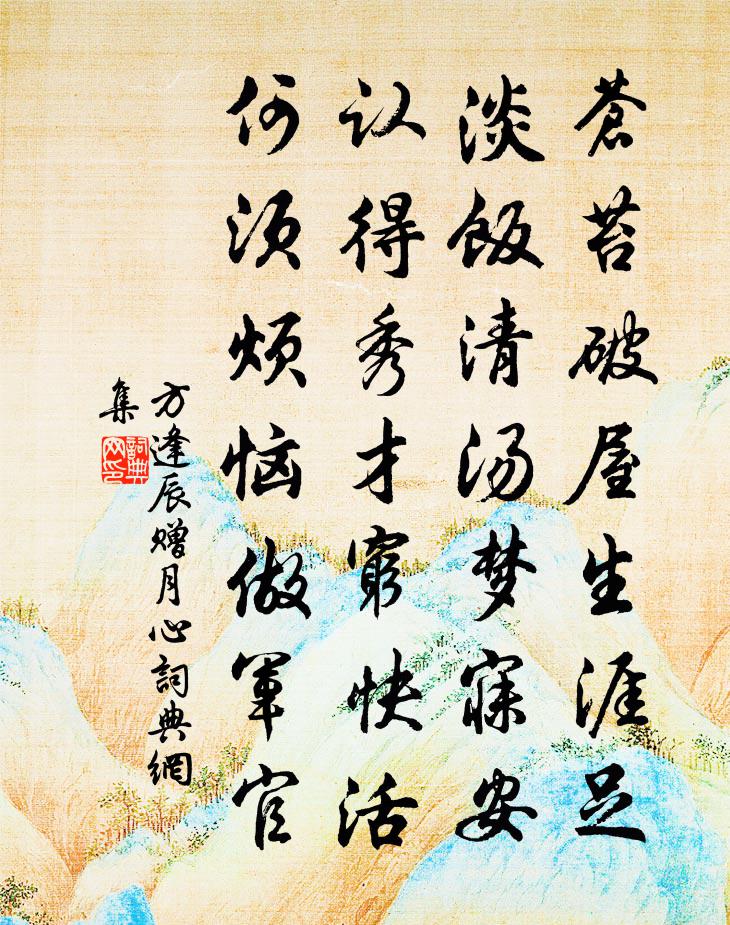 蒼苔破屋生涯足
淡飯清汤梦寐安
认得秀才窮快活
何须烦恼做軍官
方逢辰赠月心詞典網
集
詞典網印